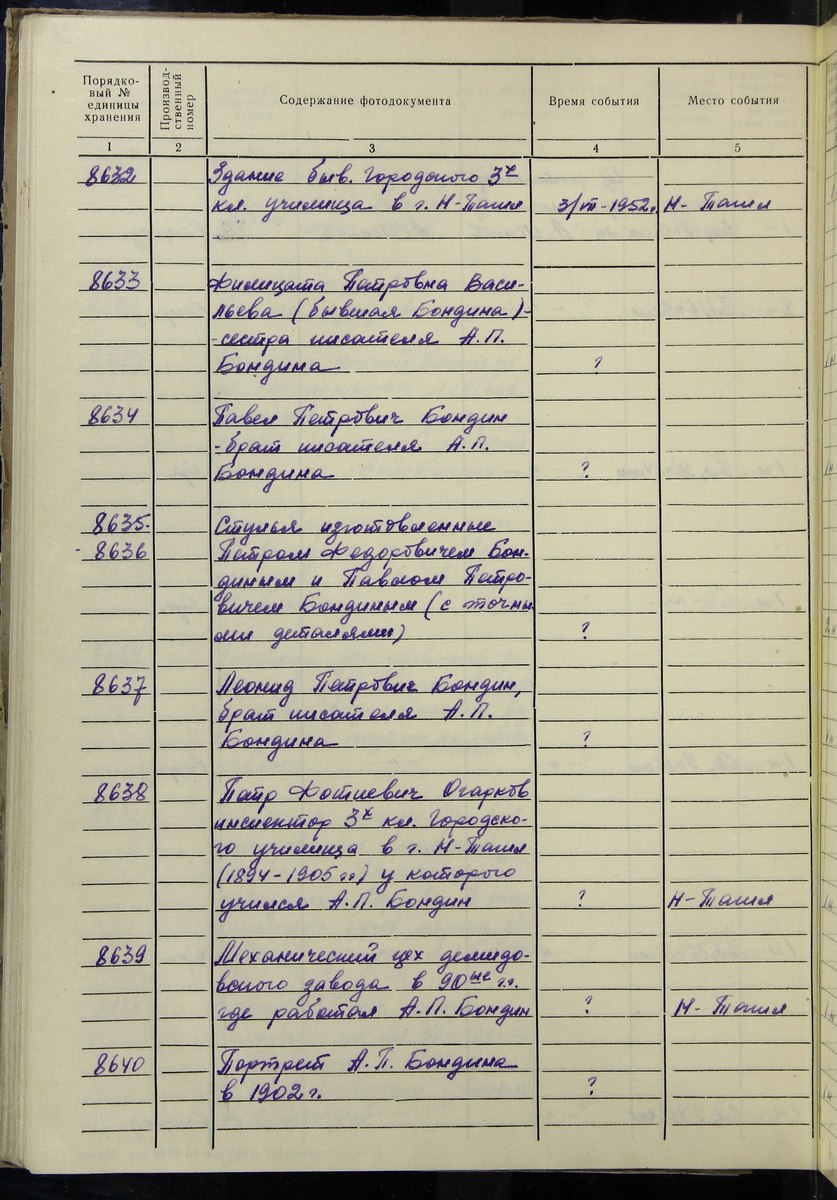 Порядко-
вый №
единицы
хранения
Производ-
ственный
номер
Содержание фотодокумента
Время события
Место события
1 2 3 4 5
8632 Здание быв. Городского 3х
кл. училища в г. Н-Тагил 3/VII-1952г. Н-Тагил
8633 Филицата Петровна Васи-
льева (бывшая Бондина)-
-сестра писателя А.П.
Бондина ?
8634 Павел Петрович Бондин
-брат писателя А.П.
Бондина ?
8635- Стулья изготовленные
-8636 Петром Федоровичем Бон-
диным и Павлом Петро-
вичем Бондиным (с точны
ми деталями) ?
8637 Леонид Петрович Бондин,
брат писателя А.П.
Бондина ?
8638 Петр Фотиевич Огарков
инспектор 3х кл. Городско-
го училища в г. Н-Тагил
(1894-1905гг) у которого
учился А.П. Бондин ? Н-Тагил
8639 Механический цех демидо-
вского завода в 90ые гг.
где работал А.П. Бондин ? Н-Тагил
8640 Портрет А.П. Бондина
в 1902г. ?